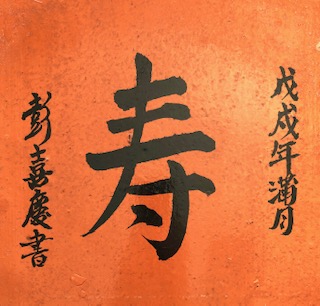 戊戌年满月
寿
彭嘉慶書